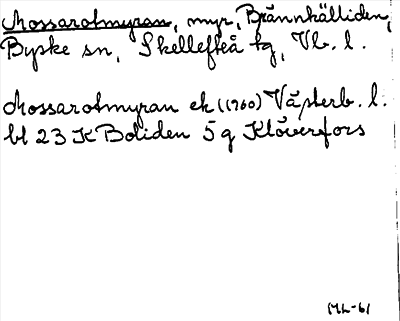 Mossarotmyran, myr, Brännkälliden,
Byske sn, Skellefteå tg, Vb. l.
Mossarotmyran ek (1960) Västerb. l.
bl 23 K Boliden 5 g Klöverfors
ML-61